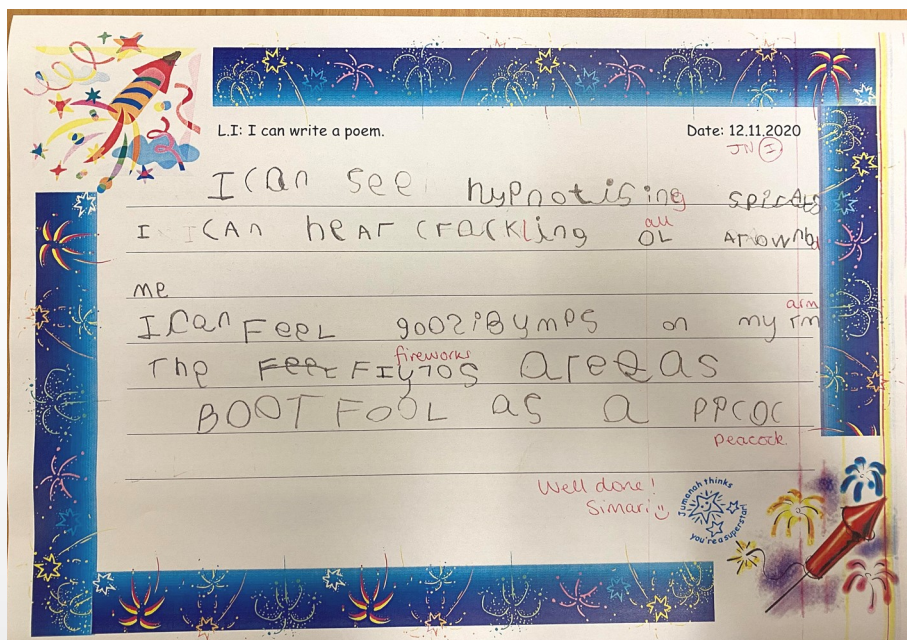 L.I: I can write a poem. Date: 12.11.2020
JN I
I can see hypnotising
all
I I CAn heAr crackling OL Arownd
me
arm
I can FeeL gooziBymps on my rm
fireworks
The Feet FIy7os areeas
BOOTFOOL as a ppcoc
peacock.
Well done!
Simari
Jumanah thinks
you're a superstar!